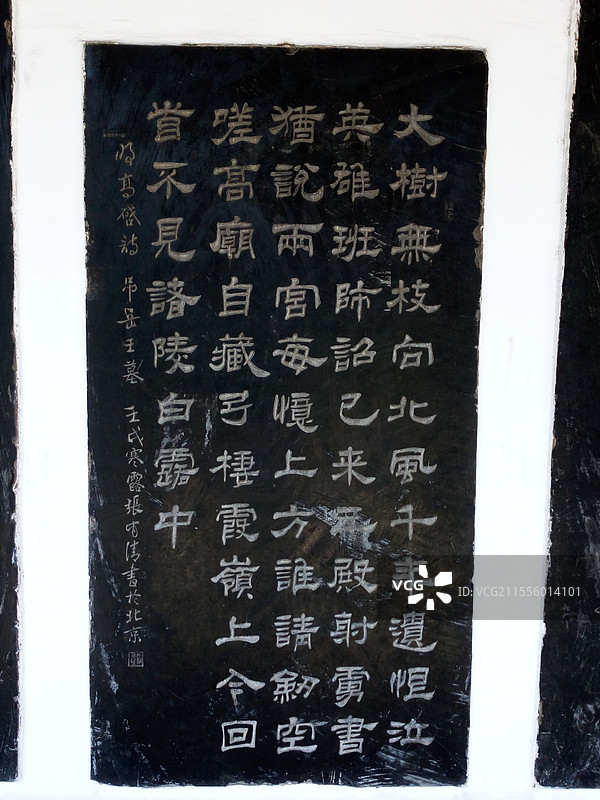 大樹無枝向北風千年遺恨泣
英雄班師詔已来三殿射虜書
猶說兩宮每憶上方誰請劔空
嗟高廟自藏弓棲霞嶺上今回
首不見諸陵白露中
明高啓詩 吊岳王墓 壬戌寒露張有清書於北京
VCG
ID:VCG211556014101